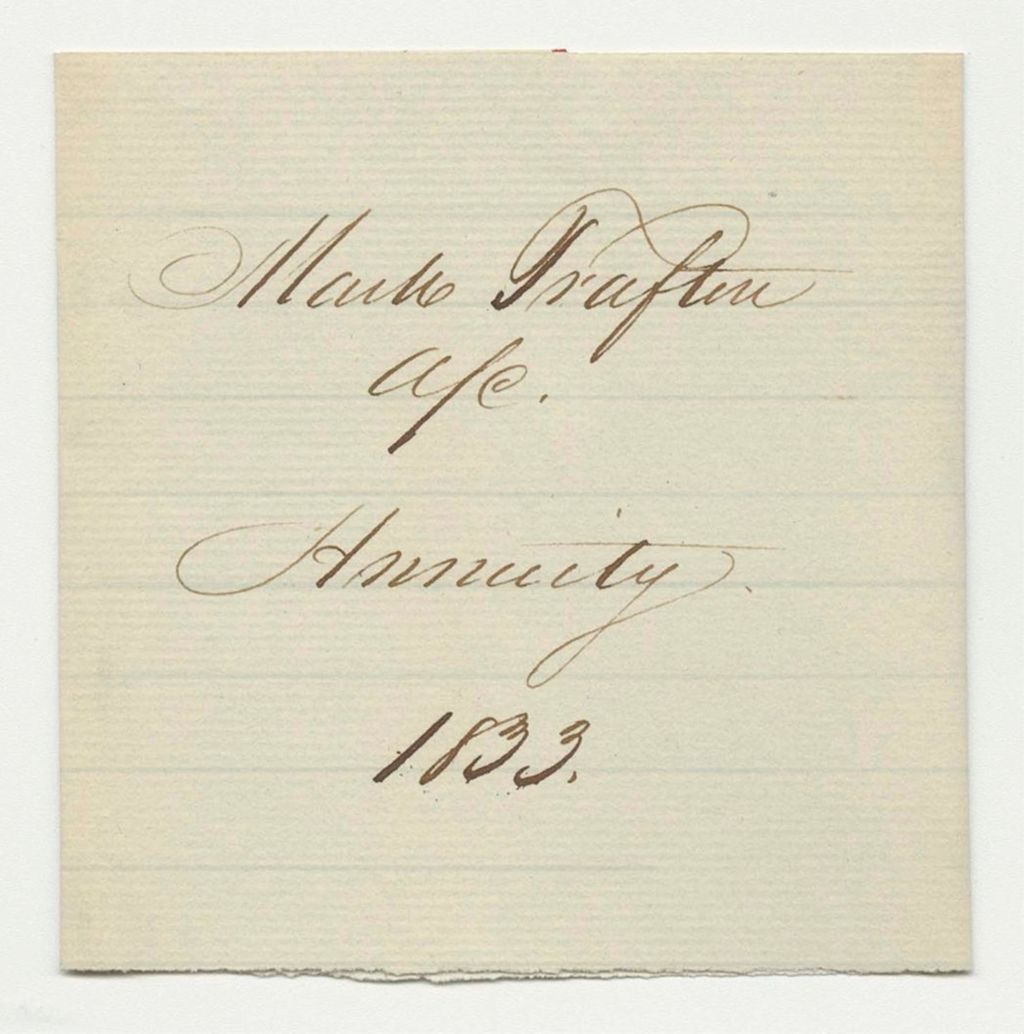 Mark Trafton
a/c.
Annuity.
1833.